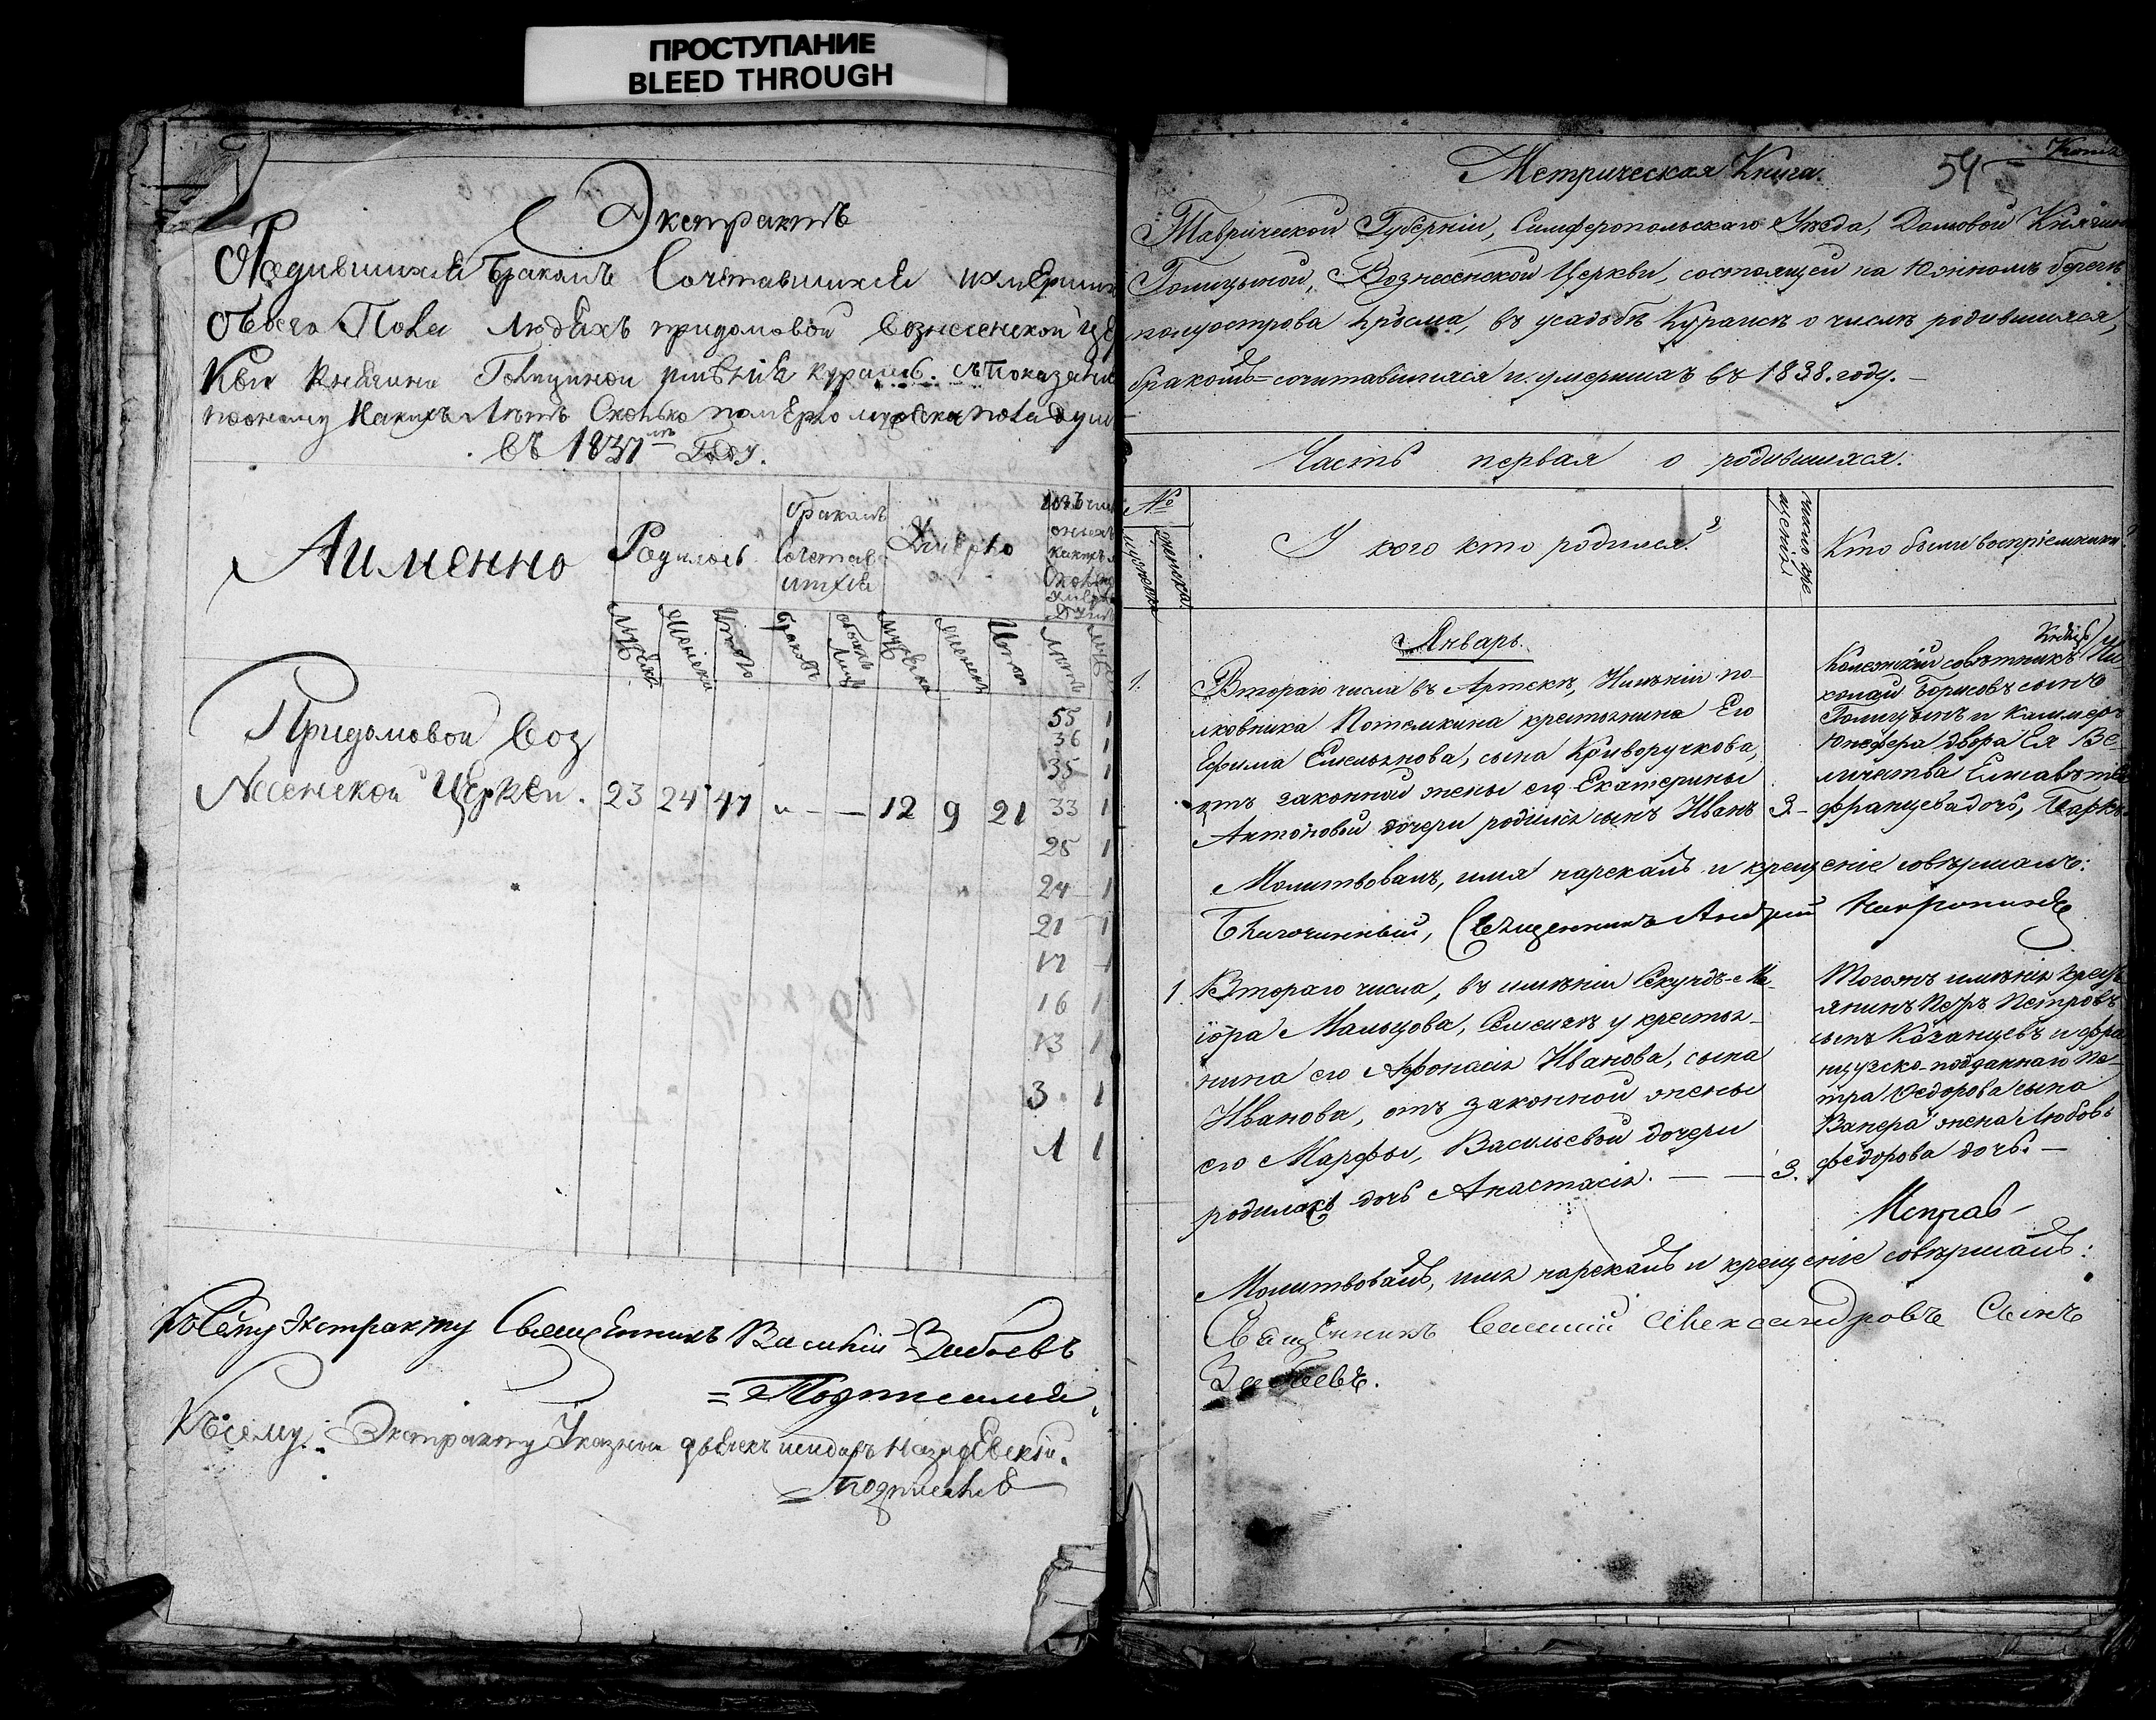 ПРОСТУПАНИЕ
BLEED THROUGH
Экстрактъ
О Родившихся бракомъ Сочетавшихся и умерших
Обоего Пола людѣхъ придомовой вознесенской цер
Кви Княгини Голицыной имѣніѣ курансъ. съ Показаніе
по оному Какихъ лѣтъ Сколько померло мужеска пола душъ
въ 1837мъ Году.
А именно
Родилось
бракомъ
сочетав
шихся
Умерло
Мужеска
Женска
Итого
браковъ
обоихъ
Лицъ
Мужеска
Женска
Итого
Лѣтъ
Придомовой Воз
Несенской Церкви. 23 24 47 „ - — 12 9 21
55 1
36 1
35 1
33 1
28 1
24 1
21 1
17 1
16 1
13 1
3 1
1 1
Къ Сему Экстракту Священникъ Василий Зибоевъ
=Подписался
Къ сему Экстракту Указный дьячекъ
=подписался
Метрическая Книга. 54
Таврической Губерніи, Симферопольскаго Уѣзда, Домовой Княгини
Голицыной, Вознесенской Церкви, состоящей на Южномъ берегѣ
полуострова Крыма, въ усадьбѣ Курансъ о числѣ родившихся,
бракомъ-сочитавшихся и умершихъ въ 1838. году.—
Часть первая о родившихся.
№
мужеска
женска
У кого кто родился?
число кре
щенія
Кто были воспріемники?
Январь.
1. Втораго числа въ Артекѣ, Имѣніи по-
лковника Потемкина крестьянина Его
Ефима Емельянова, сына Криворучкова,
отъ законной жены его Екатерины
Антоновой дочери родился сынъ Иванъ 3-
Колежскій совѣтникъ Князь Ни
колай Борисовъ сынъ
Голицынъ и Каммеръ
Юнфера двора Ея Ве-
личества Елисавѣта
францева дочь,
Молитвовалъ, имя нарекалъ и крещеніе совѣршалъ:
Благочинный, Священникъ Андрей
1. Втораго числа, въ имѣніи Секундъ-Ма-
іора Мальцова, Семеизѣ у крестья-
нина его Афонасія Иванова, сына
Иванова, отъ законной жены
его Марфы, Васильевой дочери
родилась дочь Анастасія. — — 3.
Тогожъ имѣнія крест
янинъ Петръ Петровъ
сынъ Качанцевъ и фра
нцузско-подданнаго Пе-
тра Федорова сына
Ванера жена Любовь
федорова дочь.—
Молитвовалъ, имя нарекалъ и крещеніе совѣршалъ:
Священникъ Василий Александровъ Сынъ
Зибоевъ.